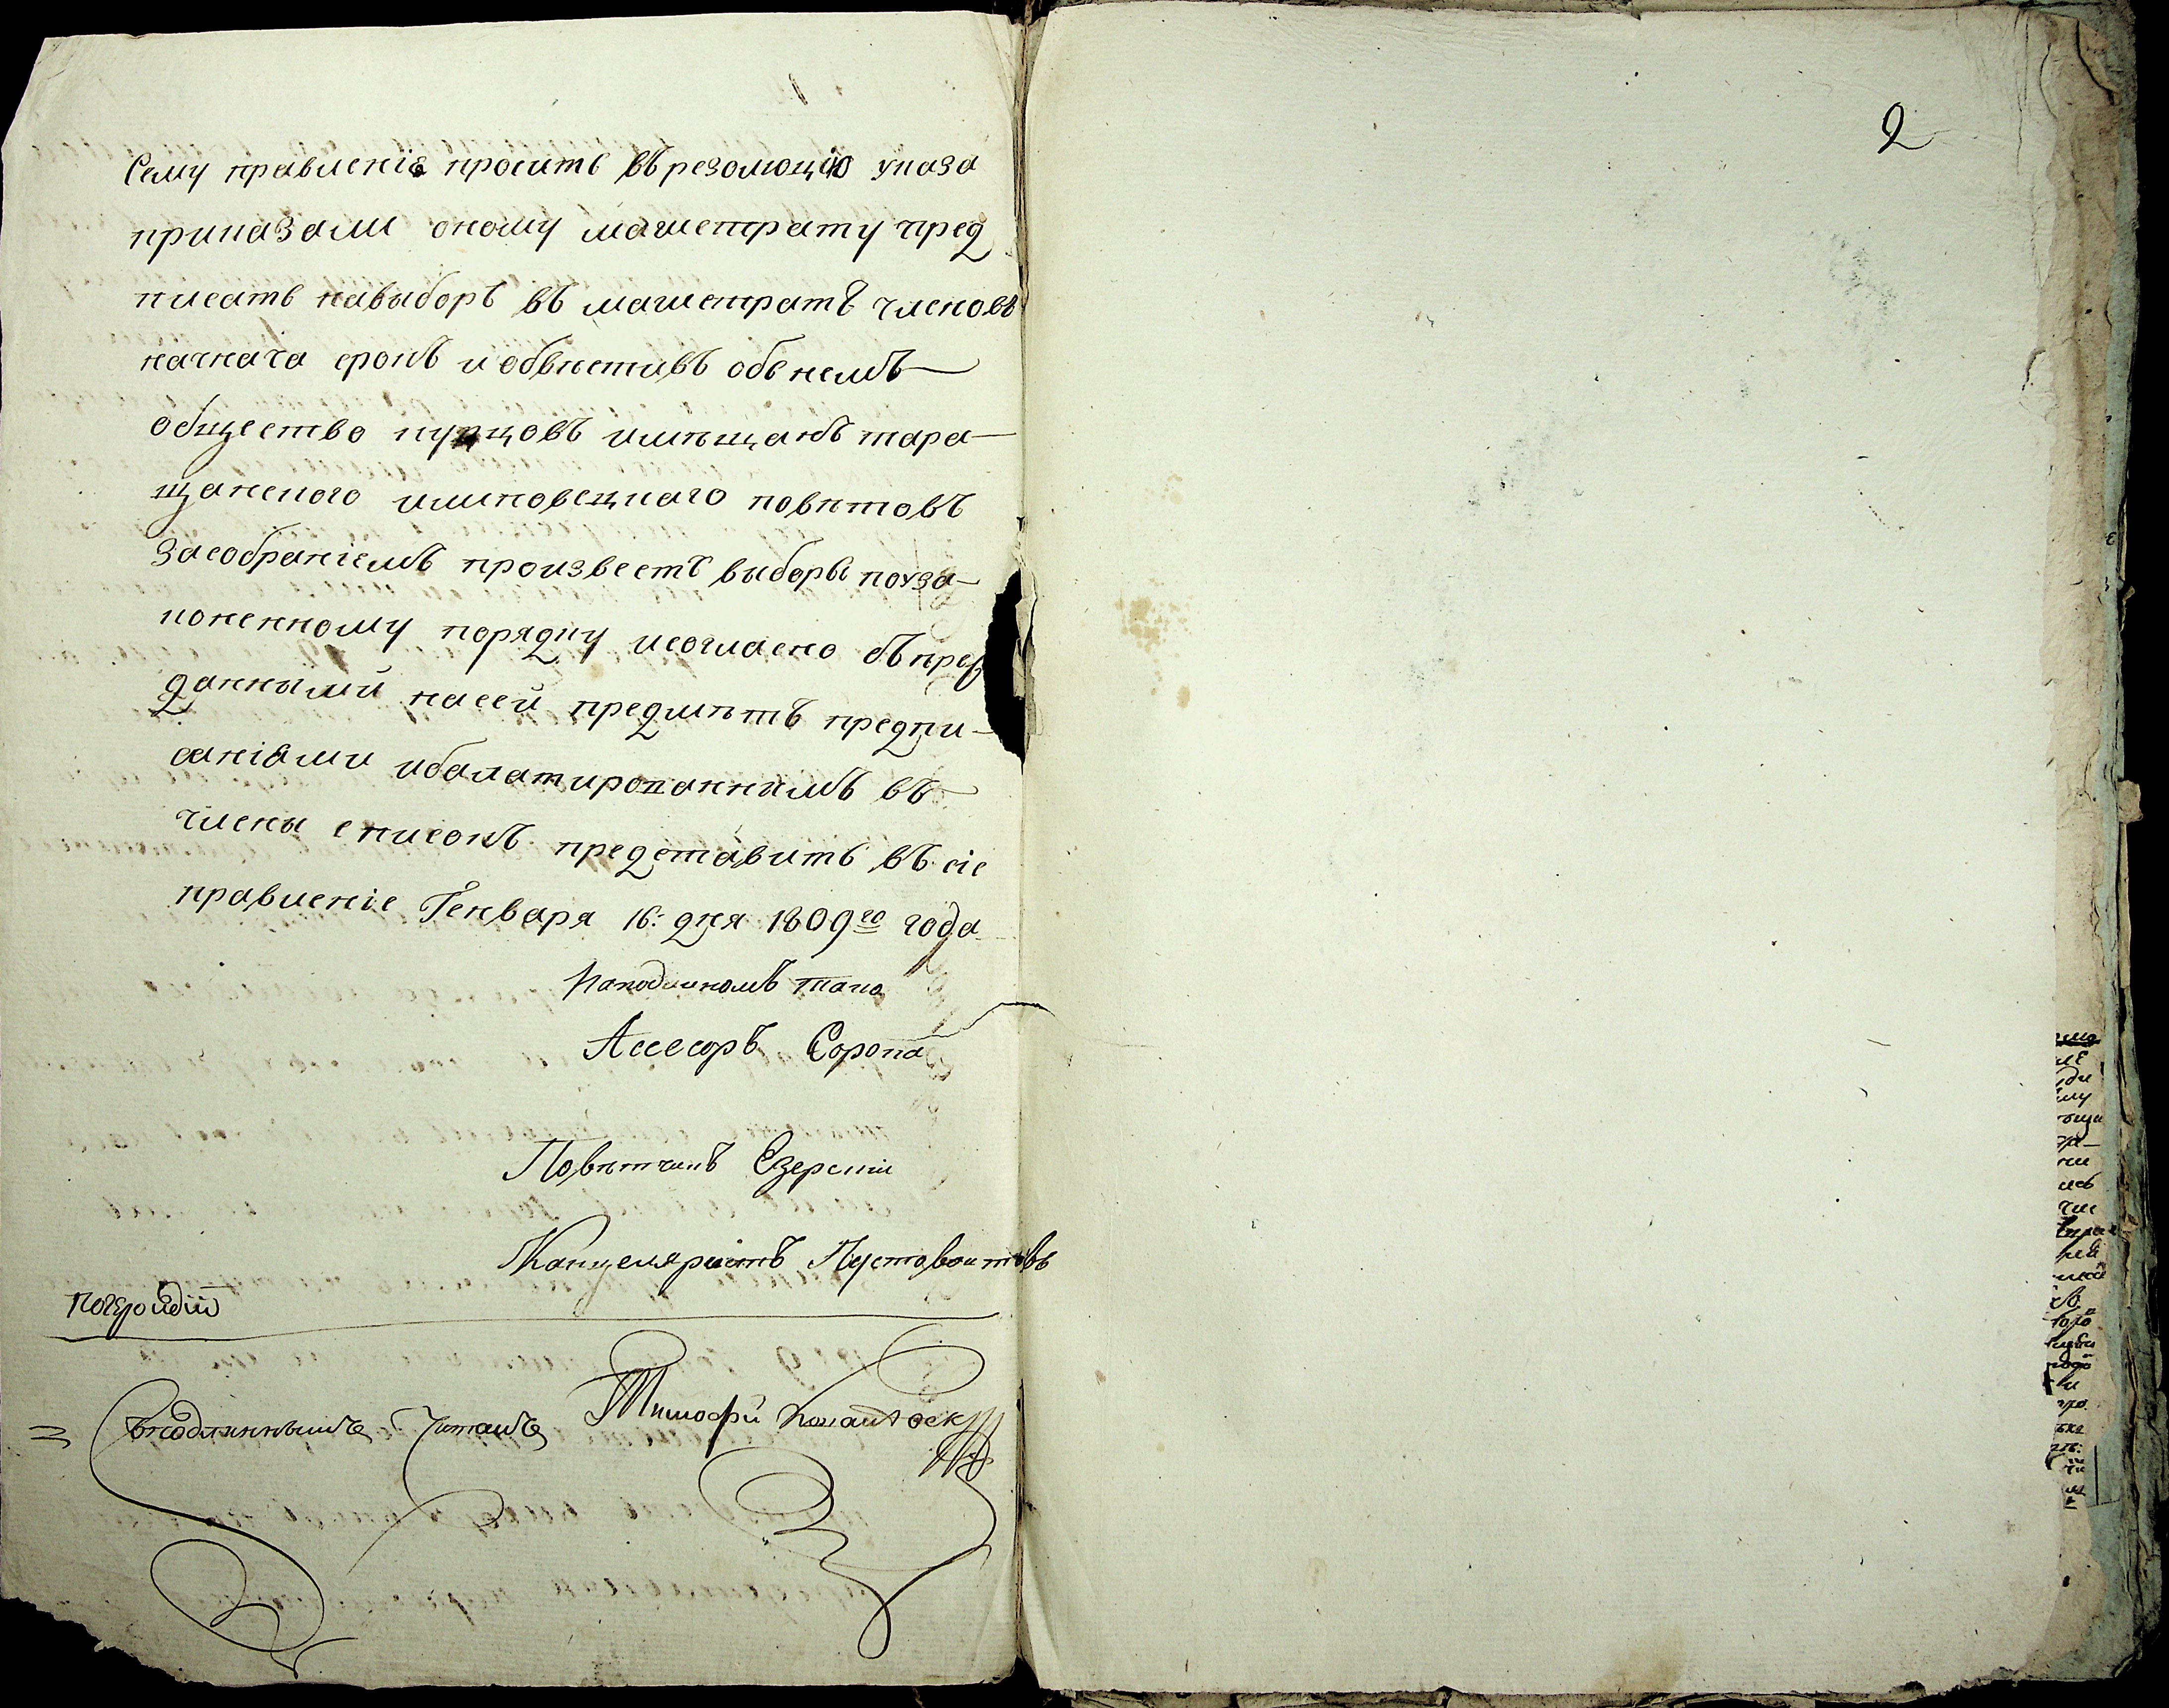 2
Сему правленіе просить въ резолюцію указа
приказали оному магистрату пред
писать на выборъ въ магистратъ членовъ
назнача срокъ и обвѣстивъ объ немъ
общество купцовъ и мѣщанъ тара-
щанского и липовецкаго повѣтовъ
за собраніемъ произвесть выборы по уза-
коненному порядку и согласно съ пре
данными на сей предмѣтъ предпи-
саніями и балатированнымъ въ
члены списокъ представить въ сіе
правленіе Генваря 16: дня 1809го года
На подлиномъ тако
Асесоръ Сорока
Повѣтчикъ Езерскій
Канцеляристъ Пустовоитовъ
Съ подлиннымъ читалъ Тимофй